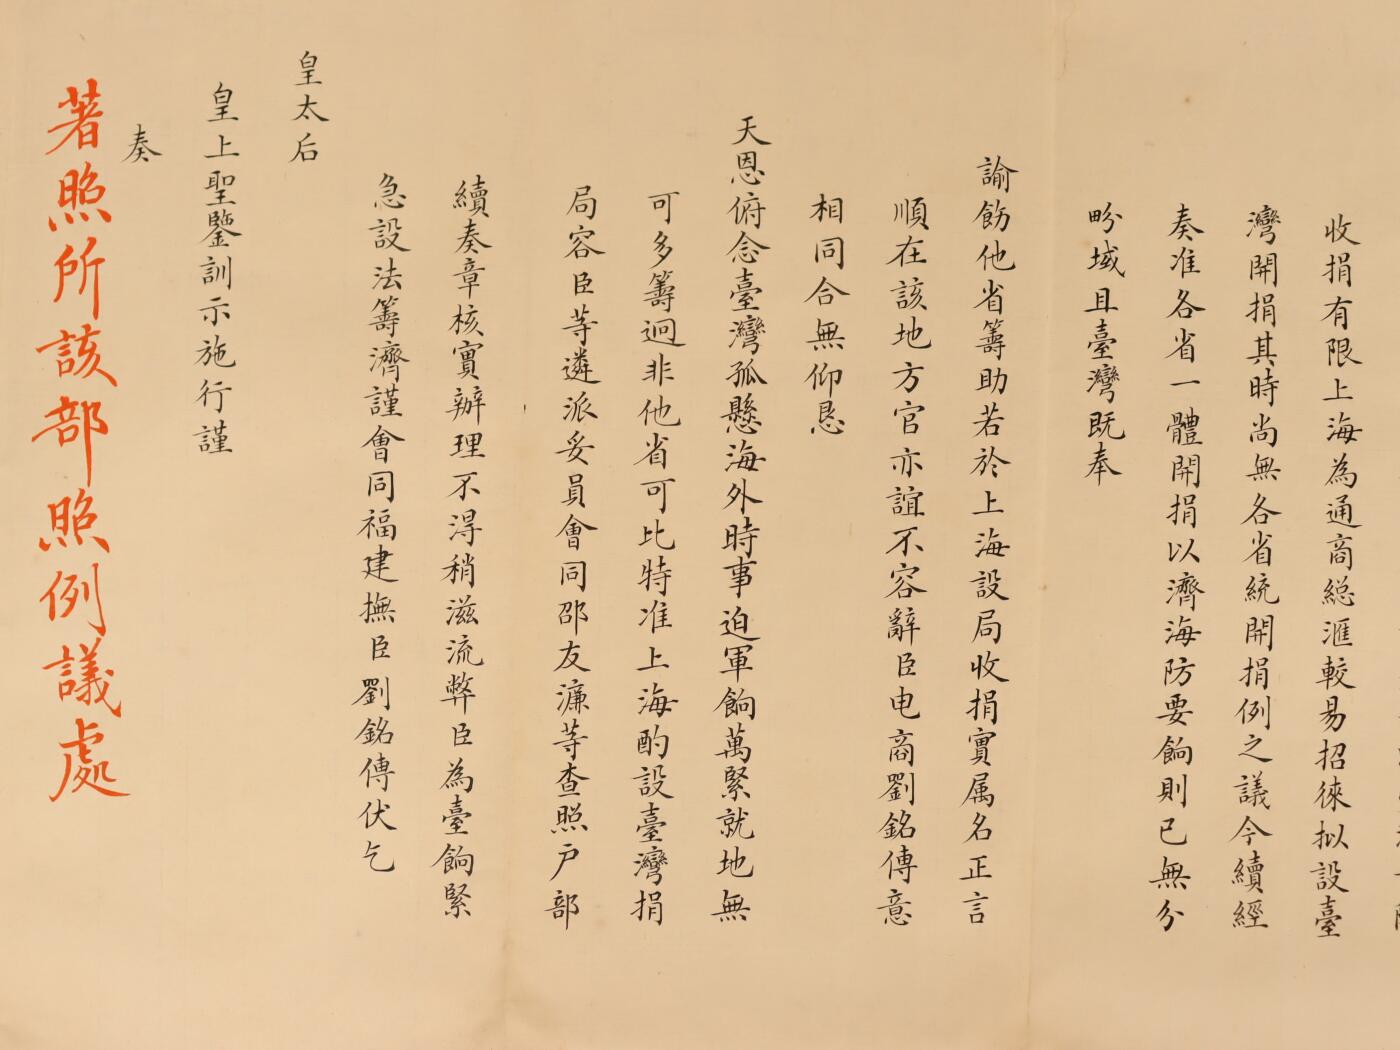 收捐有限上海為通商総滙較易招徠拟設臺
灣開捐其時尚無各省統開捐例之議今續經
奏准各省一體開捐以濟海防要餉則已無分
畛域且臺灣既奉
諭飭他省籌助若於上海設局收捐實属名正言
順在該地方官亦誼不容辭臣电商劉銘傳意
相同合無仰恳
天恩俯念臺灣孤懸海外時事迫軍餉萬緊就地無
可多籌迥非他省可比特准上海酌設臺灣捐
局容臣等遴派妥員會同邵友濂等查照户部
續奏章核實辦理不淂稍滋流弊臣為臺餉緊
急設法籌濟謹會同福建撫臣劉銘傳伏乞
皇太后
皇上聖鑒訓示施行謹
奏
著照所該部照例議處